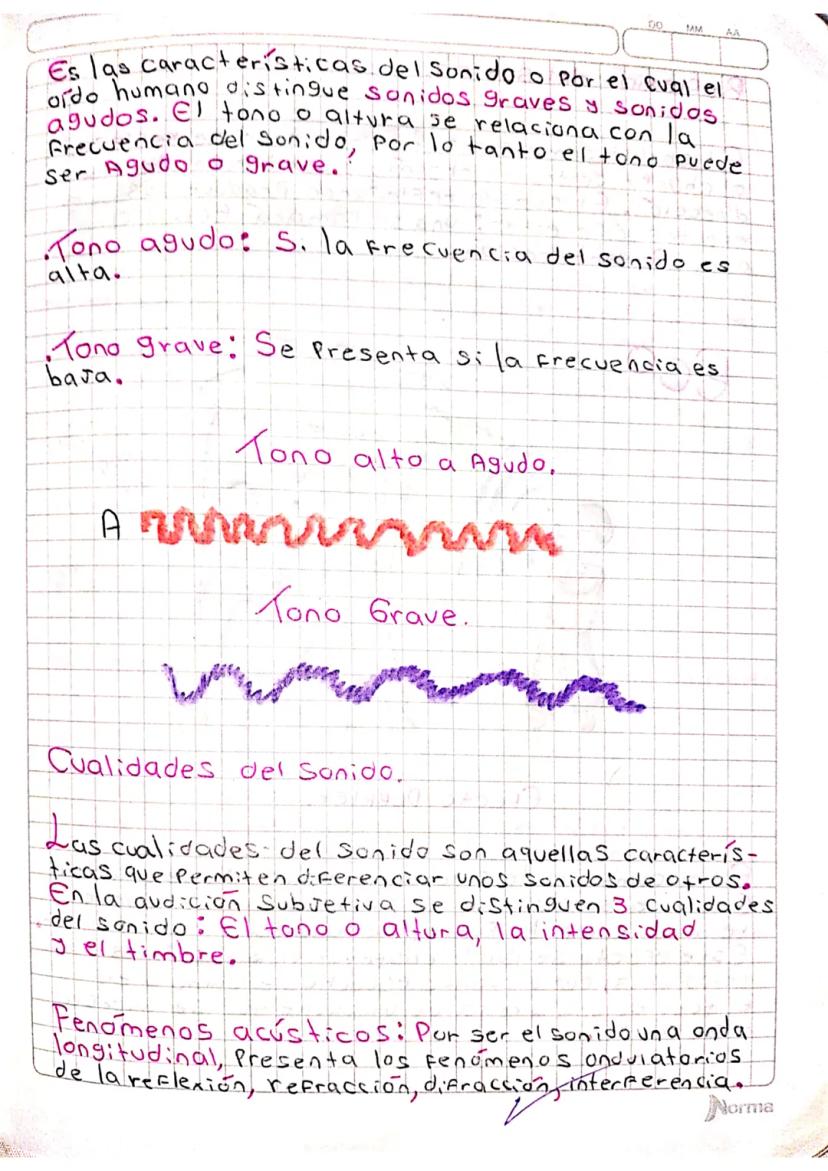 DD MM AA
Es las características del sonido o por el cual el
oído humano distingue sonidos graves y sonidos
agudos. El tono o altura se relaciona con la
frecuencia del sonido, por lo tanto el tono puede
ser Agudo o grave.
.Tono agudo: S. la frecuencia del sonido es
alta.
.Tono grave: Se presenta si la frecuencia es
baja.
Tono alto a Agudo.
A
Tono Grave.
Cualidades del sonido.
Las cualidades del sonido son aquellas caracterís-
ticas que permiten diferenciar unos sonidos de otros.
En la audición subjetiva se distinguen 3 cualidades
del sonido: El tono o altura, la intensidad
y el timbre.
Fenómenos acústicos: Por ser el sonido una onda
longitudinal, presenta los fenómenos ondulatorios
de la reflexión, refracción, difracción, interferencia.
Norma